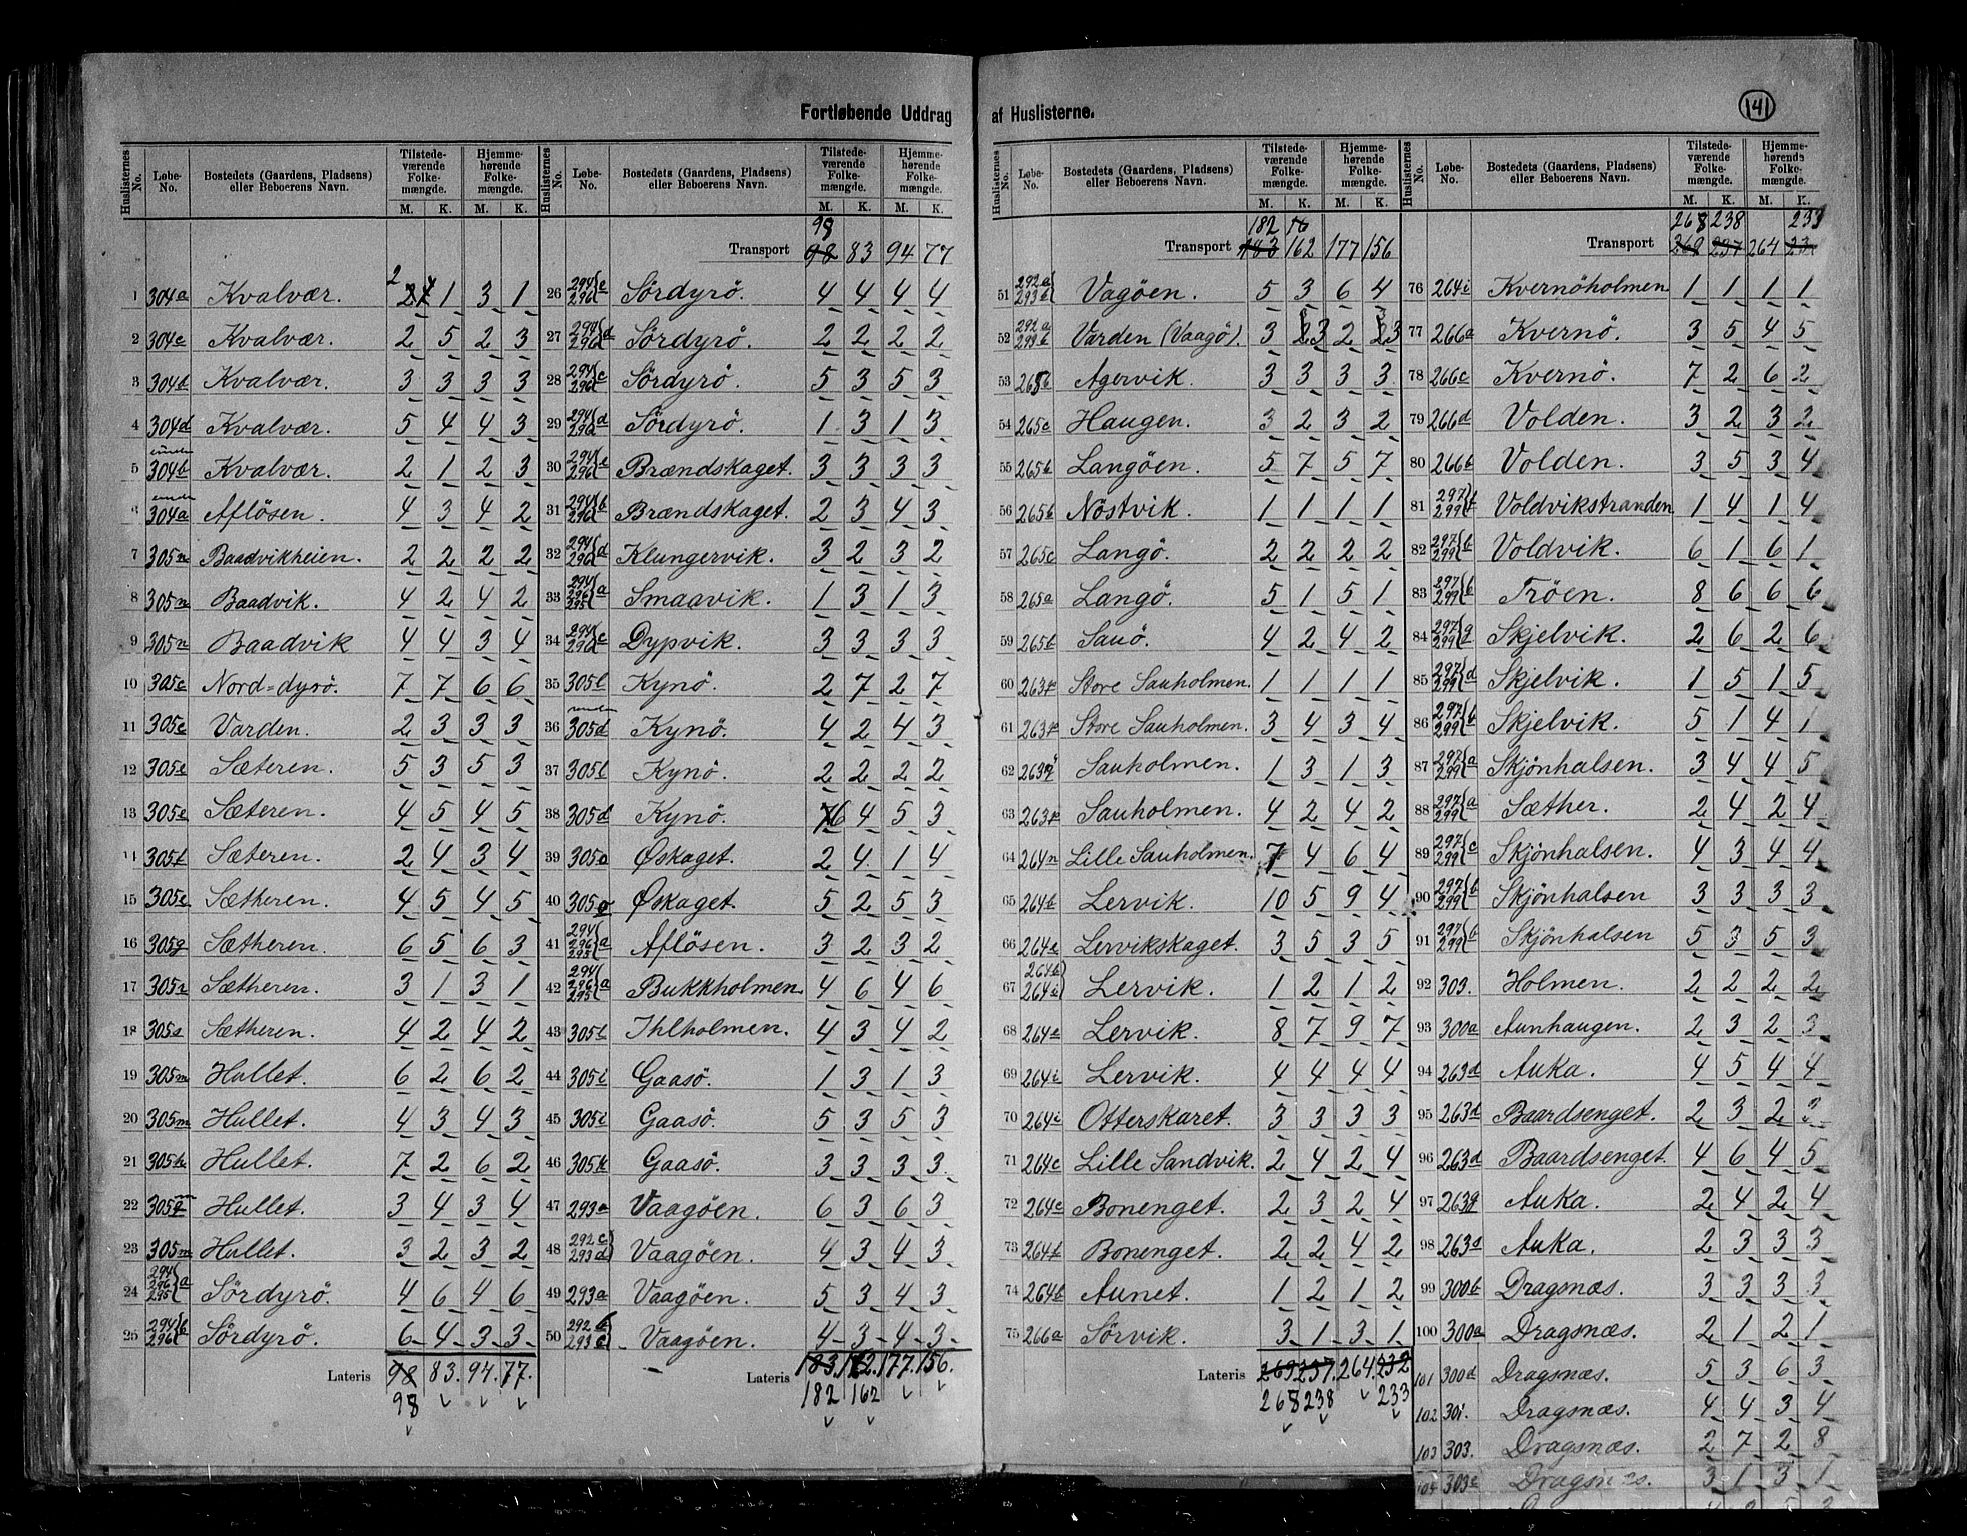 Fortløbende Uddrag af Huslisterne.
141
Huslisternes No. Løbe-No. Bostedets (Gaardens, Pladsens) eller Beboerens Navn. Tilstedeværende Folkemængde. M. K. Hjemmehørende Folkemængde. M. K.
1 304a Kvalvær. 2 1 3 1
2 304c Kvalvær. 2 5 2 3
3 304d Kvalvær. 3 3 3 3
4 304d Kvalvær. 5 4 4 3
5 304b Kvalvær. 2 1 2 3
6 304a Afløsen. 4 3 4 2
7 305n Baadvikheien. 2 2 2 2
8 305n Baadvik. 4 2 4 2
9 305n Baadvik 4 4 3 4
10 305c Nord=dyrö. 7 7 6 6
11 305c Varden. 2 3 3 3
12 305e Sæteren. 5 3 5 3
13 305e Sæteren. 4 5 4 5
14 305f Sæteren. 2 4 3 4
15 305e Sætheren. 4 5 4 5
16 305g Sætheren. 6 5 6 3
17 305s Sætheren. 3 1 3 1
18 305s Sætheren. 4 2 4 2
19 305m Hullet. 6 2 6 2
20 305m Hullet. 4 3 4 3
21 305 Hullet. 7 2 6 2
22 305 Hullet. 3 4 3 4
23 305m Hullet. 3 2 3 2
24 294 296 295 a Sördyrö. 4 6 4 6
25 294 296 b Sördyrö. 6 4 3 3
Lateris 98 83. 94. 77.
98
Huslisternes No. Løbe-No. Bostedets (Gaardens, Pladsens) eller Beboerens Navn. Tilstedeværende Folkemængde. M. K. Hjemmehørende Folkemængde. M. K.
98
Transport 98 83 94 77
26 294 296 e Sördyrö. 4 4 4 4
27 294 296 d Sördyrö. 2 2 2 2
28 294 296 c Sördyrö. 5 3 5 3
29 294 296 d Sördyrö. 1 3 1 3
30 294 296 e Brændskaget. 3 3 3 3
31 294 296 b Brændskaget. 2 3 4 3
32 294 296 d Klungervik. 3 2 3 2
33 294 296 295 a Smaavik. 1 3 1 3
34 294 296 c Dypvik. 3 3 3 3
35 305l Kynö. 2 7 2 7
36 305d Kynö. 4 2 4 3
37 305l Kynö. 2 2 2 2
38 305d Kynö. 6 4 5 3
39 305o Øskaget. 2 4 1 4
40 305o Øskaget. 5 2 5 3
41 294 296 295 a Aflösen. 3 2 3 2
42 294 296 295 a Bukkholmen. 4 6 4 6
43 305l Ihlholmen. 4 3 4 2
44 305i Gaasö. 1 3 1 3
45 305i Gaasö. 5 3 5 3
46 305k Gaasö. 3 3 3 3
47 293a Vaagöen. 6 3 6 3
48 292c 293d Vaagöen. 4 3 4 3
49 293a Vaagöen. 5 3 4 3
50 292b 293c Vaagöen. 4 3 4 3
Lateris 183. 162. 177. 156.
182 162
Huslisternes No. Løbe-No. Bostedets (Gaardens, Pladsens) eller Beboerens Navn. Tilstedeværende Folkemængde. M. K. Hjemmehørende Folkemængde. M. K.
182 16
Transport 183 162 177 156
51 292a 293b Vagöen. 5 3 6 4
52 292a 293b Varden (Vaagö). 3 3 2 3
53 265b Agervik. 3 3 3 3
54 265c Haugen. 3 2 3 2
55 265b Langöen. 5 7 5 7
56 265b Nöstvik. 1 1 1 1
57 265c Langö. 2 2 2 2
58 265a Langö. 5 1 5 1
59 265b Sauö. 4 2 4 2
60 263p Store Sauholmen. 1 1 1 1
61 263p Store Sauholmen. 3 4 3 4
62 263q Sauholmen. 1 3 1 3
63 263p Sauholmen. 4 2 4 2
64 264n Lille Sauholmen. 7 4 6 4
65 264b Lervik. 10 5 9 4
66 264e Lervikskaget. 3 5 3 5
67 264b 264i Lervik. 1 2 1 2
68 264e Lervik. 8 7 9 7
69 264i Lervik. 4 4 4 4
70 264i Otterskaret. 3 3 3 3
71 264c Lille Sandvik. 2 4 2 4
72 264c Bonenget. 2 3 2 4
73 264f Bonenget. 2 2 4 2
74 264b Aunet. 1 2 1 2
75 266a Sörvik. 3 1 3 1
Lateris 269 237. 264. 232
268 238 233
Huslisternes No. Løbe-No. Bostedets (Gaardens, Pladsens) eller Beboerens Navn. Tilstedeværende Folkemængde. M. K. Hjemmehørende Folkemængde. M. K.
268 238 233
Transport 269 237 264 23
76 264i Kvernöholmen 1 1 1 1
77 266a Kvernö. 3 5 4 5
78 266c Kvernö. 7 2 6 2
79 266d Volden. 3 2 3 2
80 266b Volden. 3 5 3 4
81 297 299 f Voldvikstranden 1 4 1 4
82 297 299 b Voldvik. 6 1 6 1
83 297 299 b Tröen. 8 6 6 6
84 297 299 g Skjelvik. 2 6 2 6
85 297 299 d Skjelvik. 1 5 1 5
86 297 299 b Skjelvik. 5 1 4 1
87 297 299 a Skjönhalsen. 3 4 4 5
88 297 299 a Sæther. 2 4 2 4
89 297 299 c Skjönhalsen. 4 3 4 4
90 297 299 b Skjönhalsen 3 3 3 3
91 297 299 b Skjönhalsen 5 3 5 3
92 303. Holmen. 2 2 2 2
93 300a Aunhaugen. 2 3 2 3
94 263d Auka. 4 5 4 4
95 263d Baardsenget. 2 3 2 3
96 263d Baardsenget. 4 6 4 5
97 263g Auka. 2 4 2 4
98 263d Auka. 2 3 3 3
99 300b Dragsnæs. 3 3 3 3
100 300a Dragsnæs. 2 1 2 1
101 300d Dragsnæs. 5 3 6 3
102 301. Dragsnæs. 4 4 3 4
103 303. Dragsnæs. 2 7 2 8
104 303c Dragsnæs. 3 1 3 1